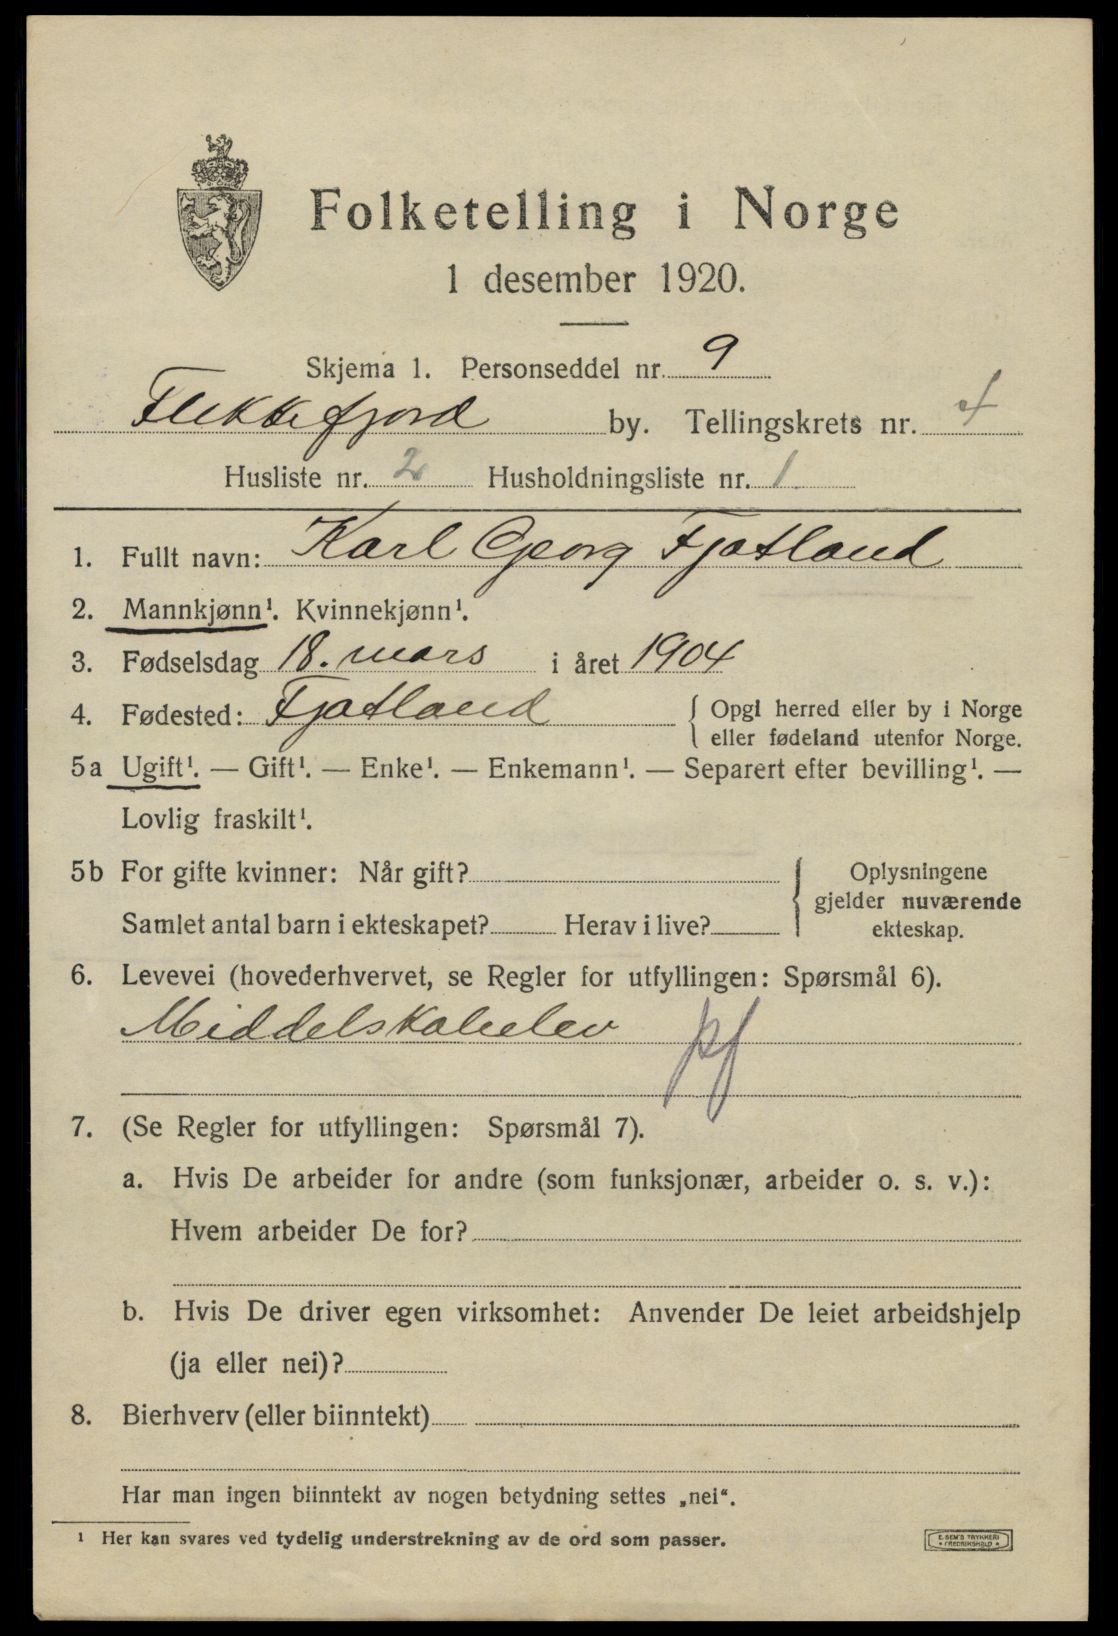 Folketelling i Norge
1 desember 1920.
Skjema 1. Personseddel nr. 9
Flekkefjord by. Tellingskrets nr. 4
Husliste nr. 2 Husholdningsliste nr. 1.
1. Fullt navn: Karl Georg Fjotland
2. Mannkjønn¹. Kvinnekjønn¹.
3. Fødselsdag 18. mars i året 1904
4. Fødested: Fjotland { Opgi herred eller by i Norge
eller fødeland utenfor Norge.
5a Ugift¹. — Gift¹. — Enke¹. — Enkemann¹. — Separert efter bevilling¹. —
Lovlig fraskilt¹.
5b For gifte kvinner: Når gift? { Oplysningene
gjelder nuværende
Samlet antal barn i ekteskapet? Herav i live? ekteskap.
6. Levevei (hovederhvervet, se Regler for utfyllingen: Spørsmål 6).
Middelskoleelev pf
7. (Se Regler for utfyllingen: Spørsmål 7).
a. Hvis De arbeider for andre (som funksjonær, arbeider o. s. v.):
Hvem arbeider De for?
b. Hvis De driver egen virksomhet: Anvender De leiet arbeidshjelp
(ja eller nei)?
8. Bierhverv (eller biinntekt)
Har man ingen biinntekt av nogen betydning settes „nei“.
¹ Her kan svares ved tydelig understrekning av de ord som passer.
E. SEM'S TRYKKERI
* FREDRIKSHALD *